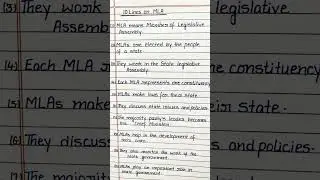 10 Lines on MLA
(1) MLA means Member of Legislative
Assembly.
(2) MLAs are elected by the people
of a state.
(3) They work in the State legislative
Assembly.
(4) Each MLA represents one constituency
(5) MLAs make laws for their state.
(6) They discuss state issues and policies.
(7) The majority party's leader becomes
the Chief Minister.
(8) MLAs help in the development of
their area.
(9) They also monitor the work of the
state government.
MLAs play an important role in
state government.
(3) They work
Assembly
(4) Each MLA
(5) MLAs make
(6) They discuss
legislative
constituency
their state.
and policies.